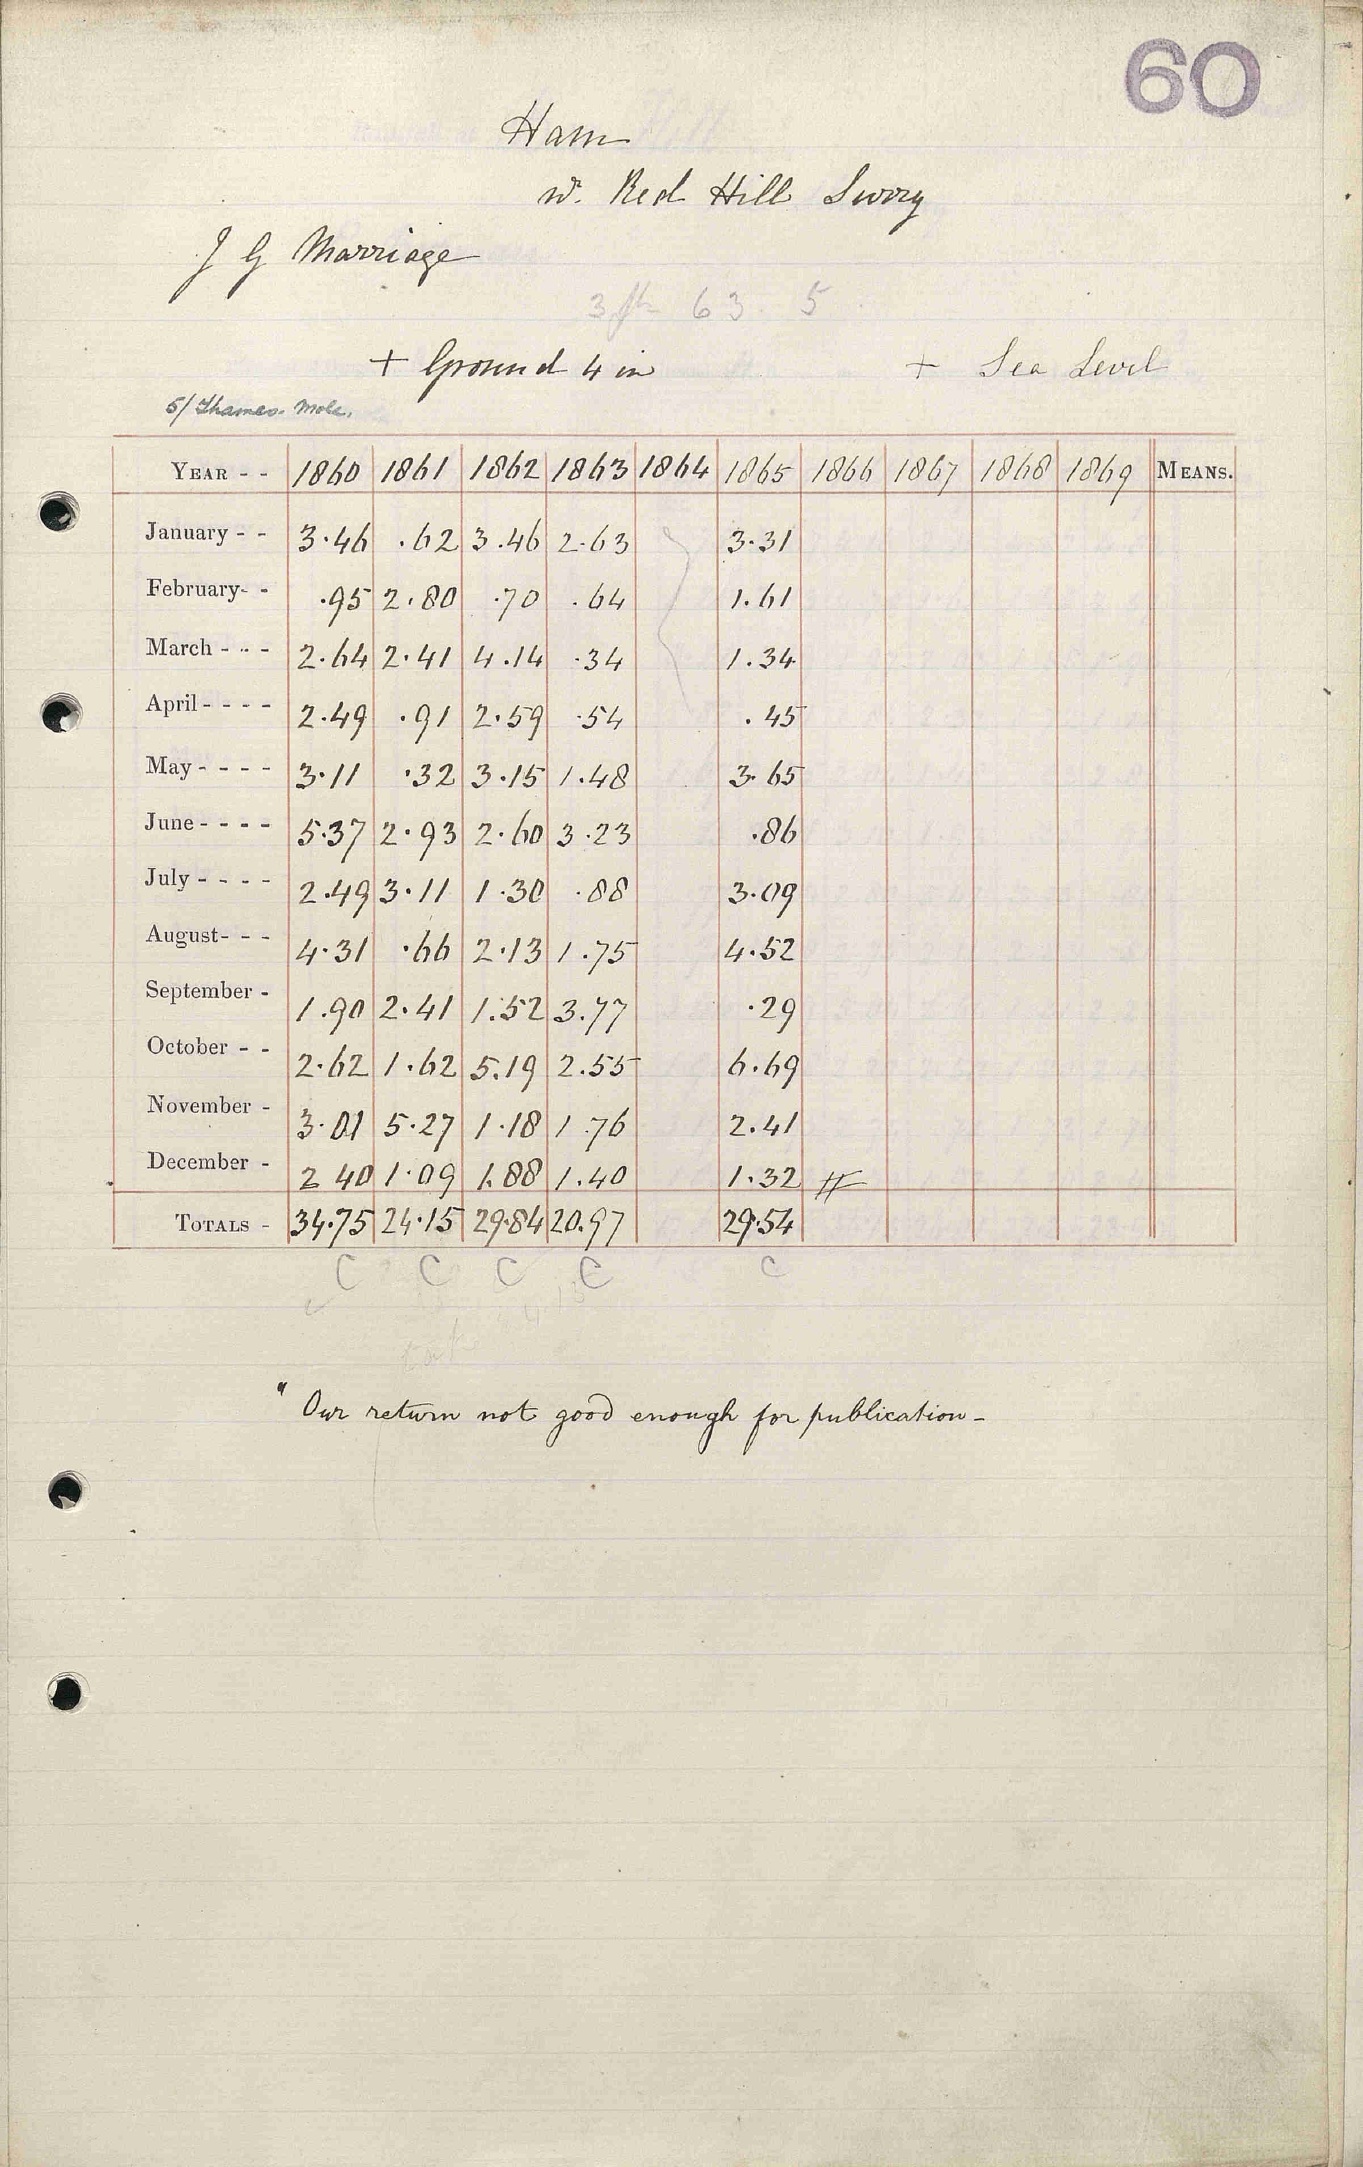 60
Ham
nr. Red Hill Surry
J G Marriage
3 ft 63. 5
+ Ground 4 in + Sea Level
5/ Thames-Mole.
YEAR - - 1860 1861 1862 1863 1864 1865 1866 1867 1868 1869 MEANS.
January - - 3.46 .62 3.46 2.63 3.31
February- - .95 2.80 .70 .64 1.61
March - - - 2.64 2.41 4.14 .34 1.34
April - - - - 2.49 .91 2.59 .54 .45
May - - - - 3.11 .32 3.15 1.48 3.65
June - - - - 5.37 2.93 2.60 3.23 .86
July - - - - 2.49 3.11 1.30 .88 3.09
August- - - 4.31 .66 2.13 1.75 4.52
September - 1.90 2.41 1.52 3.77 .29
October - - 2.62 1.62 5.19 2.55 6.69
November - 3.01 5.27 1.18 1.76 2.41
December - 2 40 1.09 1.88 1.40 1.32 #
TOTALS - 34.75 24.15 29.84 20.97 29.54
C C C C C
" Our return not good enough for publication -